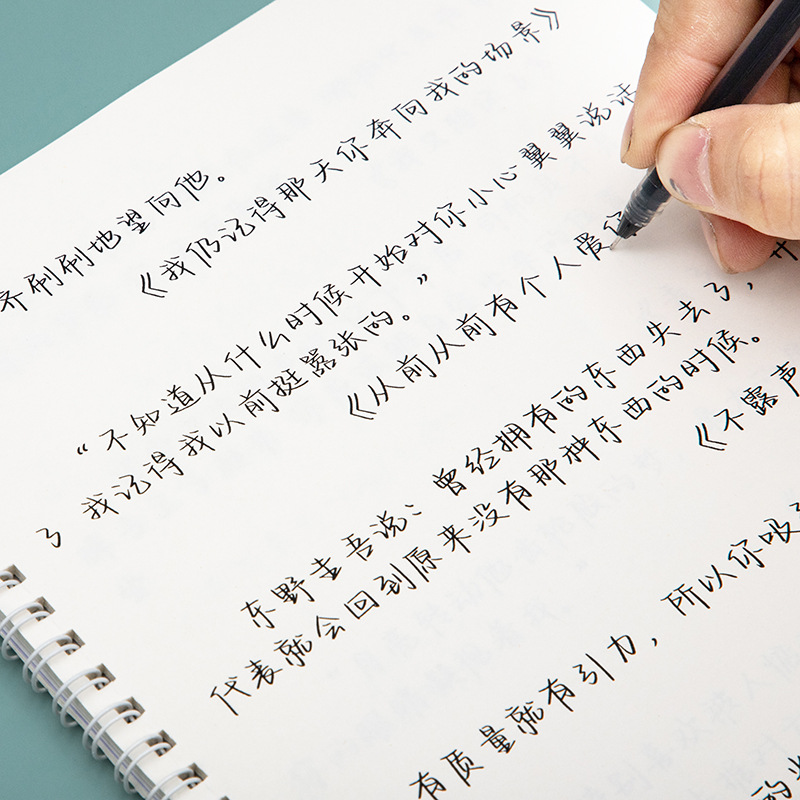 齐刷刷地望向他。
《我仍记得那天你奔向我的场景》
“不知道从什么时候开始对你小心翼翼说话
了 我记得我以前挺嚣张的。”
《从前从前有个人爱你
东野圭吾说：曾经拥有的东西失去了，并
代表就会回到原来没有那种东西的时候。
《不露声
有质量就有引力，所以你吸
的